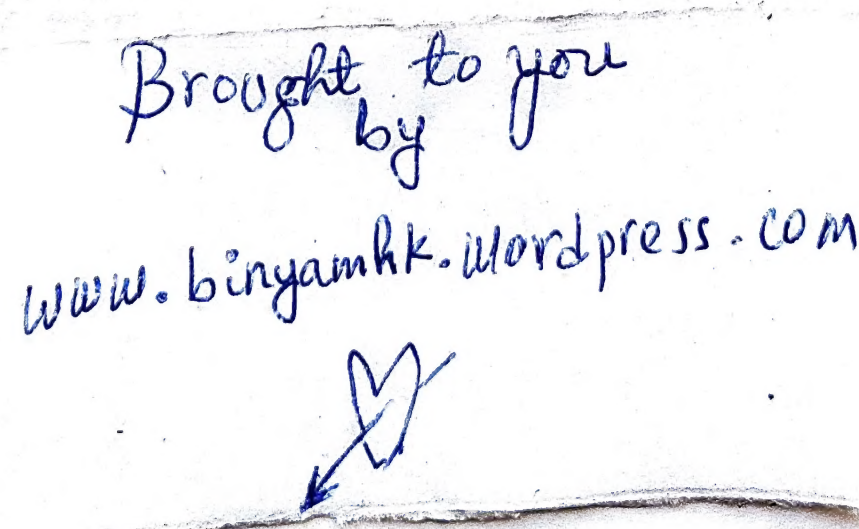 Brought to you
by
www.binyamhk.wordpress.com